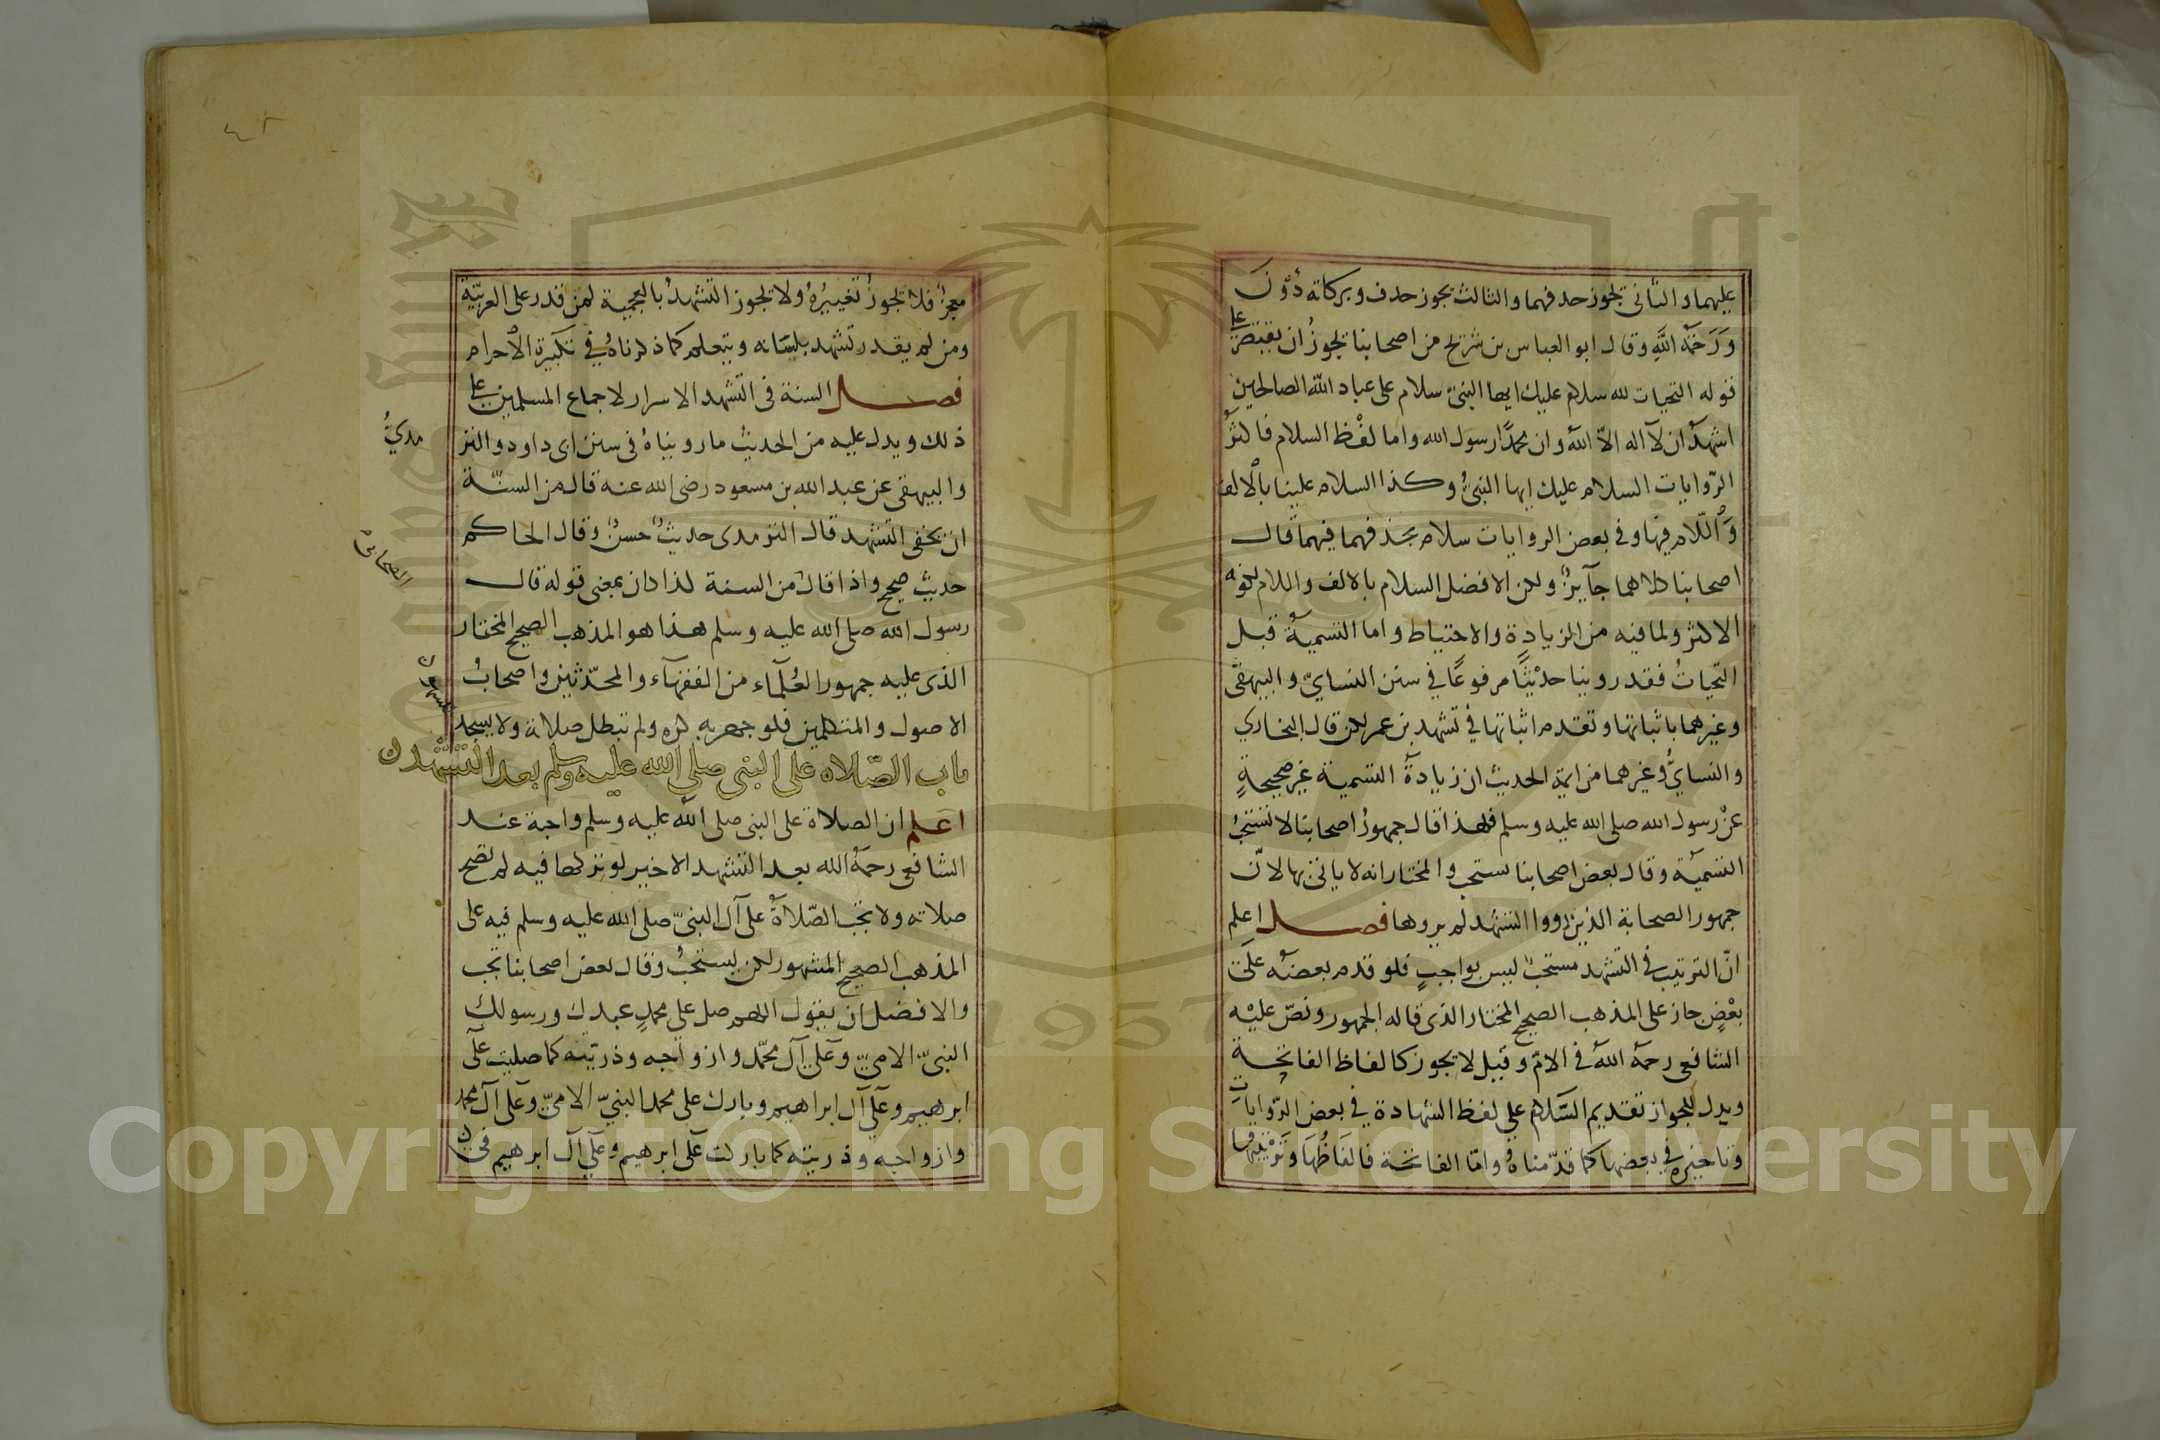 عليهما والثاني يجوز حدفهما والثالث يجوز حدف وبركاته دُوْنَ
وَرَحمَة اللَّهِ وقال ابو العباس بن شريح من اصحابنا يجوزُ ان يقتصرَ على
قوله التحيات لله سلام عليك ايها النبىّ سلام على عباد الله الصالحين
اشهدُ ان لآ اله الاّ اللّه وان محمدًا رسول الله واما لفْظ السلام فاكثرُ
الرّوايات السلام عليك ايها النبىُّ وكذا السلام علينا بالْالف
وَاللّام فيها وفي بعض الروايات سلام بحذفهما فيهما قال
اصحابنا كلاهما جآيزٌ ولكن الافضل السلام بالالف واللام لكونه
الاكثر ولما فيه من الزيادةِ والاحتياط واما التسميةُ قبل
التحياتُ فقد روينا حديْثًا مرفوعًا في سنن النسايّ والبيهقّى
وغيرهما باثباتها وتقدم اثباتها فى تشهد بن عمر لكن قال البخاري
والنسايُّ وغيرهما من ايمة الحديث ان زيادةَ التسمية غير صحيحةٍ
عنْ رسول الله صلى الله عليه وسلم فلهذا قال جمهورُ اصحابنا لا تستحبُ
التسميَة وقال بعض اصحابنا يستحب والمختار انه لا ياتى بها لانّ
جمهور الصحابة الذين رووا التشهد لم يروها فصل اعلم
انّ الترتيب في التشهد مستحبٌ ليس بواجبٍ فلو قدم بعضَه علَى
بعْضٍ جاز على المذهب الصحيح المختار الذى قاله الجمهور ونصّ عليْه
الشافعى رحمهُ اللهُ فى الامّ وقيل لا يجوز كالفاظ الفاتحة
ويدل للجواز تقديم السَّلام علي لفظ الشهادة في بعض الرّواياتِ
وتاخيره في بعضها كما قدّمناهُ وامّا الفاتحة فالفَاظُهَا وَتَرْتيبها
معجزٌ فلا يجوزُ تغييرُهُ ولا يجوز التشهدُ بالعجمية لمن قدر على العربيّة
ومن لم يقدر تشهد بلسَانه ويتعلم كما ذكرناهُ في تكبيرة الْاحرام
فصل السنة فى التشهد الاسرار لاجماع المسلمين على
ذلك ويدل عليه من الحديث ما رويناهُ فى سنن ابى داود والتر
مديُّ
والبيهقى عن عبد الله بن مسعود رضى الله عنه قال من السنّة
ان يخفى التشهد قال الترمدى حديثٌ حسنٌ وقال الحاكم
حديث صحيح واذا قال من السنة كذا كان بمعنى قوله قال
الصحابى
رسول الله صلى الله عليه وسلم هذا هو المذهب الصحيح المختار
الذى عليه جمهور العُلَمَآء من الفقهآء والمحدّثين واصحابُ
الاصول والمتكلمين فلو جهر به كره ولم تبطل صلاته ولا يسجد
باب الصّلاه على النبى صلى اللّه عليه وسلم بعد التشهد
اعلم ان الصلاة على النبى صلى اللّه عليه وسلم واجبة عند
الشافعى رحمهُ الله بعد التشهد الاخير لو تركها فيه لم تصح
صلاته ولا تجب الصّلاةُ على آل النبىّ صلى الله عليه وسلم فيه على
المذهب الصحيح المشهور لكن يستحبُ وقال بعض اصحابنا تجب
والافضل ان يقول اللهم صل على محمدٍ عبدك ورسولك
النبىّ الامىّ وعَلى آل محمّد وازواجه وذريّته كما صليت علَى
ابرهيم وعَلى آل ابراهيم وبارك على محمد النبىّ الامىّ وعَلى آل محمد
وازواجه وذريته كما باركت علَى ابرهيم وعَلى آل ابرهيم فى
Copyright © King Saud University
1957